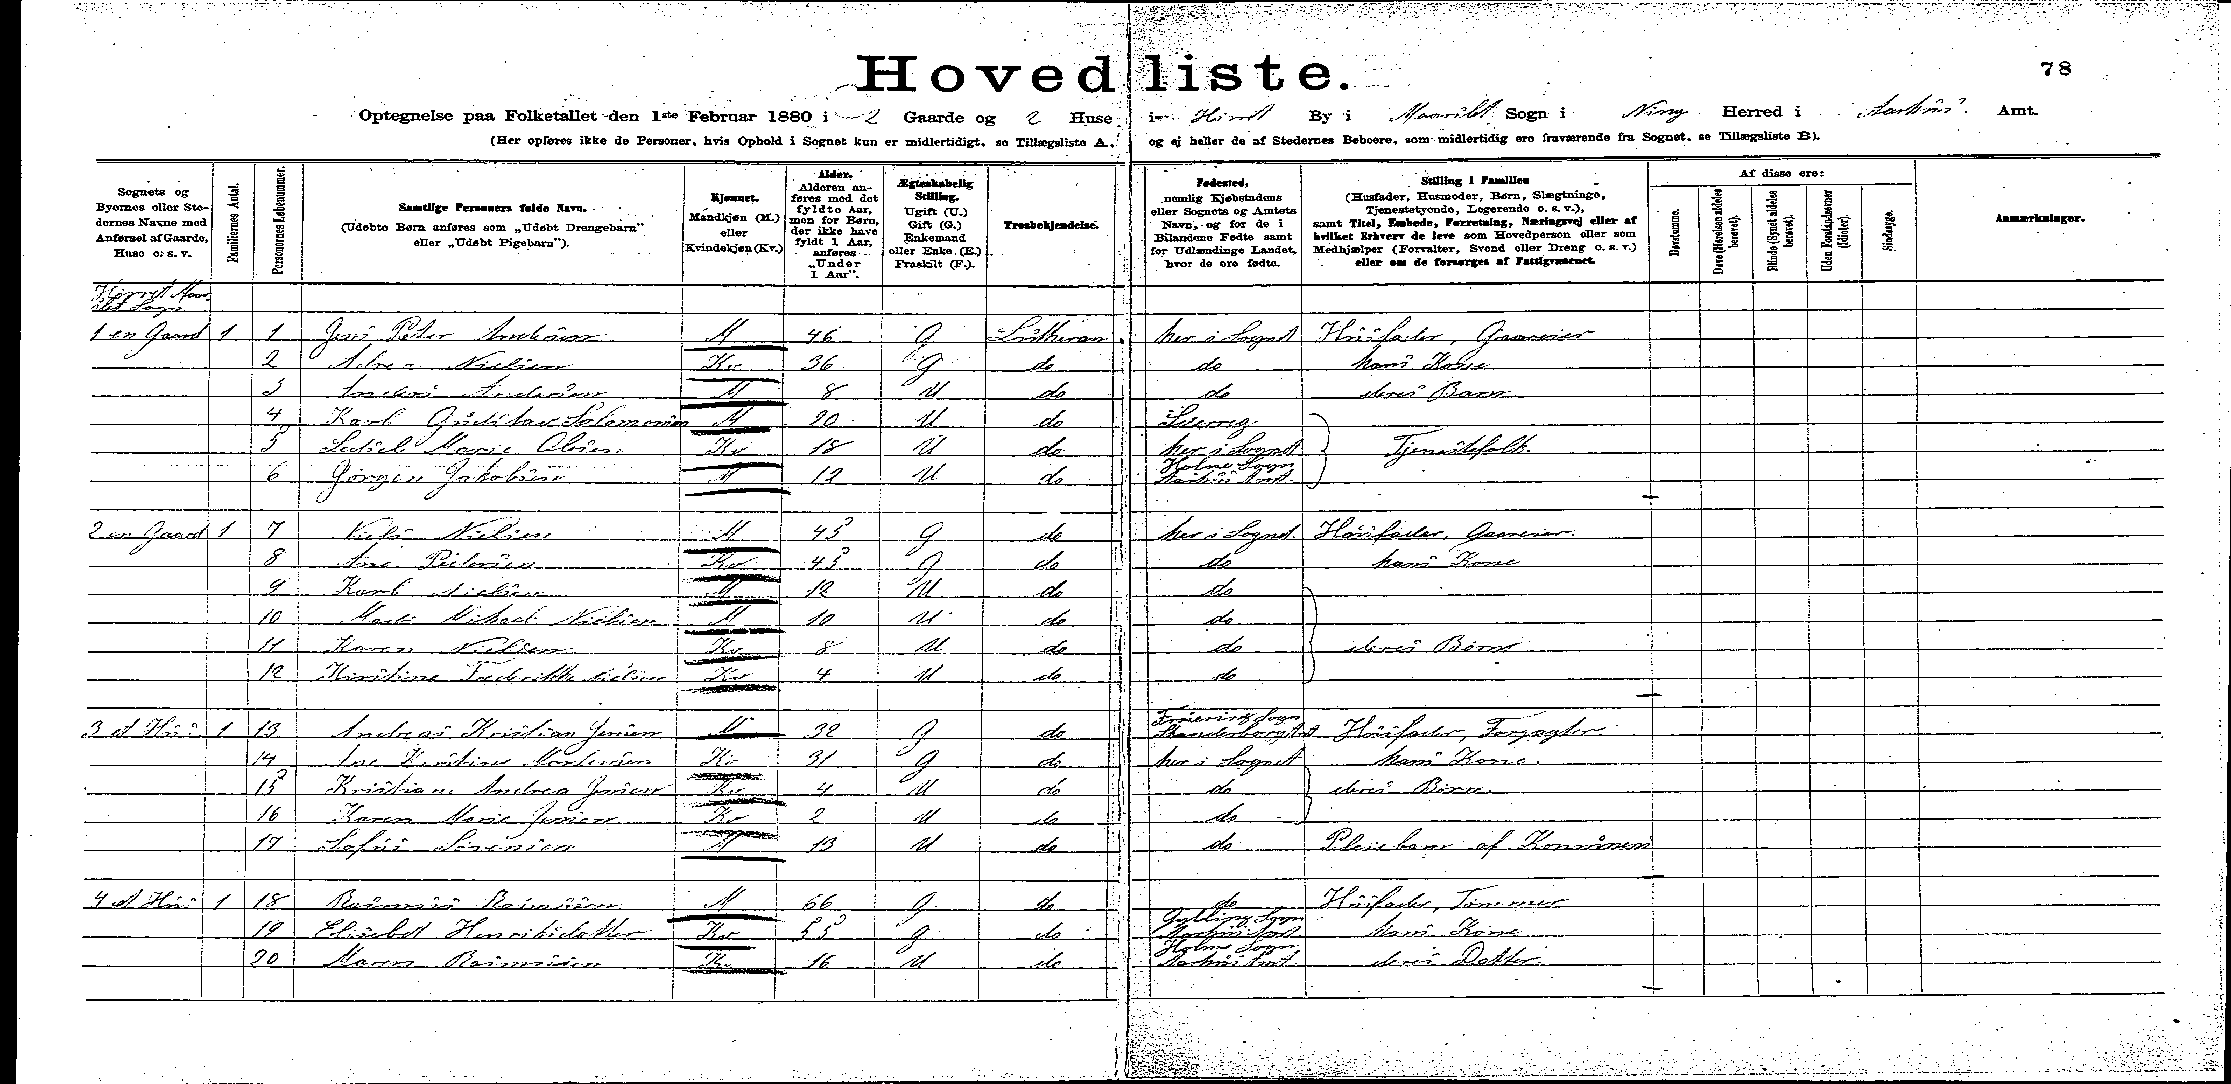 Hovedliste.
78
Optegnelse paa Folketallet den 1ste Februar 1880 i 2 Gaarde og 2 Huse i Hörret By i Maarslet Sogn i Ning Herred i Aarhus Amt.
(Her opføres ikke de Personer, hvis Ophold i Sognet kun er midlertidigt, se Tillægsliste A, og ej heller de af Stedernes Beboere, som midlertidig ere fraværende fra Sognet, se Tillægsliste B).
Sognets og Byernes eller Stedernes Navne med Anførsel af Gaarde, Huse o. s. v.
Familiernes Antal.
Personernes Løbenummer.
Samtlige Personers fulde Navn. (Udøbte Børn anføres som „Udøbt Drengebarn" eller „Udøbt Pigebarn").
Kjønnet. Mandkjøn (M.) eller Kvindekjøn (Kv.)
Alder. Alderen anføres med det fyldte Aar, men for Børn, der ikke have fyldt 1 Aar, anføres „Under 1 Aar".
Ægteskabelig Stilling. Ugift (U.) Gift (G.) Enkemand eller Enke (E.) Fraskilt (F.).
Trosbekjendelse.
Fødested, nemlig Kjøbstadens eller Sognets og Amtets Navn, og for de i Bilandene Fødte samt for Udlændinge Landet, hvor de ere fødte.
Stilling i Familien (Husfader, Husmoder, Børn, Slægtninge, Tjenestetyende, Logerende o. s. v.), samt Titel, Embede, Forretning, Næringsvej eller af hvilket Erhverv de leve som Hovedperson eller som Medhjælper (Forvalter, Svend eller Dreng o. s. v.) eller om de forsørges af Fattigvæsenet.
Af disse ere:
Døvstumme.
Døve (Hørelsen aldeles berøvet).
Blinde (Synet aldeles berøvet).
Uden Forstandsevner (Idioter).
Sindssyge.
Anmærkninger.
Hörret Maarslet Sogn
1 en Gaard 1 1 Jens Peter Andersen M 46 G Lutheran her i Sognet Husfader, Gaareier
2 Nielsen Kv 36 G do do hans Kone
3 Anders Andersen M 8 U do do deres Barn
4 Karl Gustav Salomonsen M 20 U do Sverrig
5 Marie Olsen Kv 18 U do her i Sognet Tjenestefolk
6 Jörgen Jakobsen M 12 U do Holme Sogn Aarhus Amt
2 en Gaard 1 7 Niels Nielsen M 45 G do her i Sognet Husfader, Gaareier
8 Ane Pedersen Kv 45 G do do hans Kone
9 Karl Nielsen M 12 U do do
10 Mikael Nielsen M 10 U do do
11 Karen Nielsen Kv 8 U do do deres Börn
12 Kirstine Frederikke Nielsen Kv 4 U do do
3 et Hus 1 13 Andreas Kristian Jensen M 32 G do Sogn Skanderborg Amt Husfader, Forpagter
14 Ane Kirstine Mortensen Kv 31 G do her i Sognet hans Kone
15 Kristiane Andrea Jensen Kv 4 U do do deres Börn
16 Karen Marie Jensen Kv 2 U do do
17 Sofus Sörensen M 13 U do do Pleiebarn af Kommunen
4 et Hus 1 18 Rasmus Rasmussen M 66 G do do Husfader, Tömmer
19 Elisabet Henriksdatter Kv 55 G do Gylling Sogn Aarhus Amt hans Kone
20 Maren Rasmussen Kv 16 U do Holme Sogn Aarhus Amt deres Datter